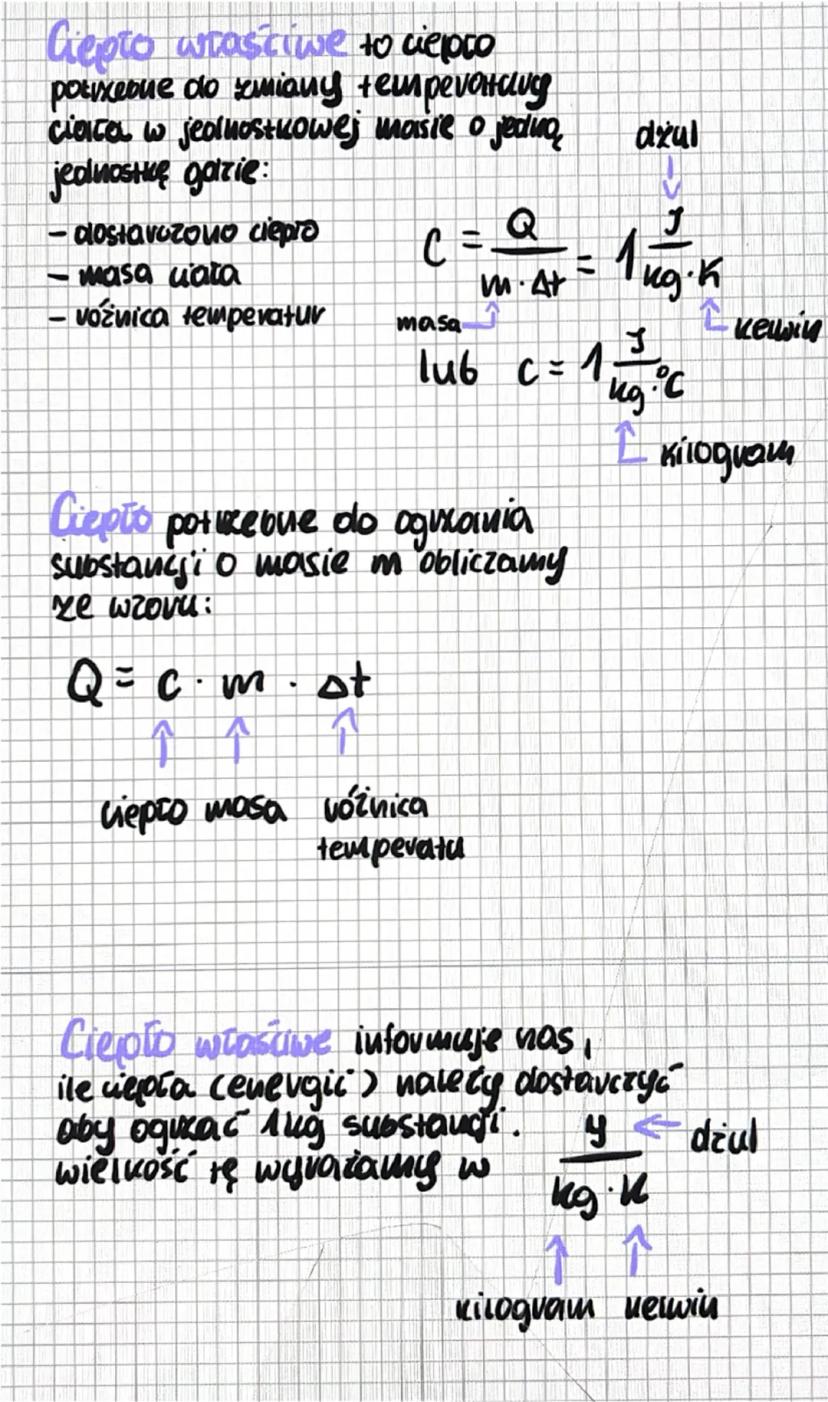 Ciepło właściwe to ciepło
potrzebne do zmiany temperatury
ciała w jednostkowej masie o jedną
jednostkę gdzie:
dżul
- dostarczono ciepło
- masa ciała
- różnica temperatur
C = Q / m · Δt = 1 J / kg · K
masa
kelwin
lub c = 1 J / kg · °C
kilogram
Ciepło potrzebne do ogrzania
substancji o masie m obliczamy
ze wzoru:
Q = c · m · Δt
ciepło masa różnica
temperatu
Ciepło właściwe informuje nas,
ile ciepła (energić) należy dostarczyć
aby ogrzać 1kg substancji.
wielkość tę wyrażamy w
y / kg · K
dżul
kilogram kelwin